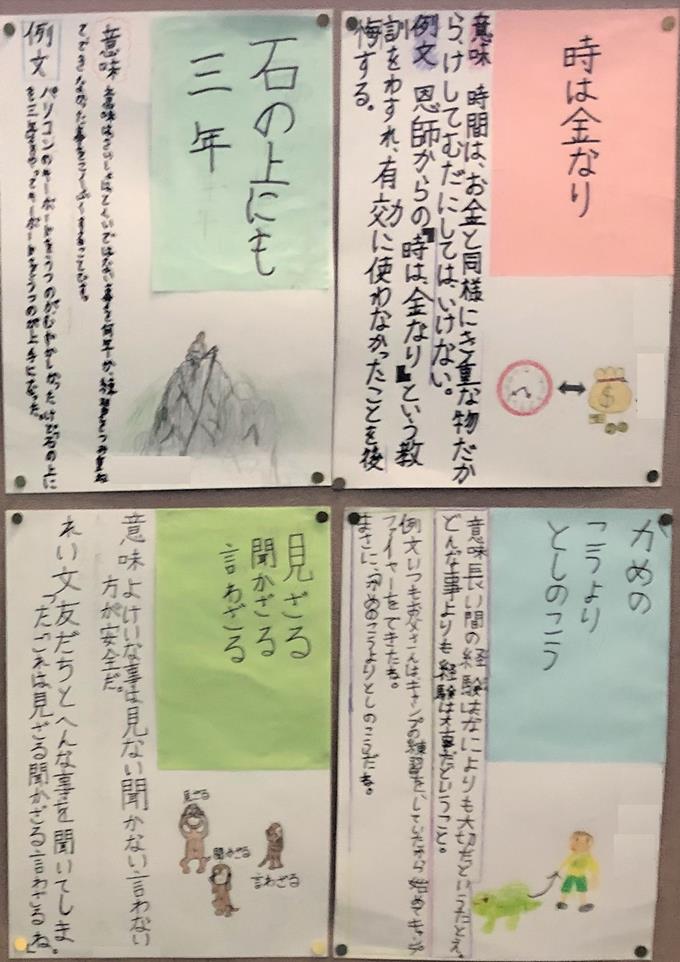 時は金なり
意味 時間は、お金と同様にき重な物だか
ら、けしてむだにしては、いけない。
例文 恩師からの『時は、金なり』という教
訓をわすれ、有効に使わなかったことを後
悔する。
$
石の上にも
三年
意味 意味はさいしょは ではない事を何年か練習をつみ重ね
てできなかった事を
例文 パソコンのキーボードをうつのがむずかしかったけど、石の上に
も三年をやってキーボードをうつのが上手になった。
かめの
こうより
としのこう
意味長い間の経験はなによりも大切だというたとえ。
どんな事よりも経験は大事だということ。
例文いつもお父さんはキャンプの練習をしていたから始めてキャンプ
ファイヤーをできたね。
まさに、かめのこうよりとしのこうだね。
見ざる
聞かざる
言わざる
意味よけいな事は見ない聞かない言わない
方が安全だ。
れい文友だちとへんな事を聞いてしま
った「これは見ざる聞かざる言わざるね。」
見ざる
聞かざる
言わざる